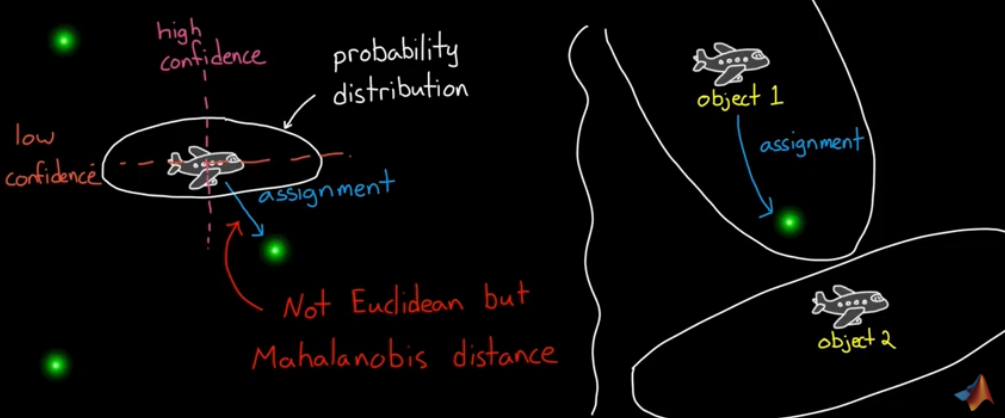 high
confidence
probability
distribution
low
confidence
assignment
Not Euclidean but
Mahalanobis distance
object 1
assignment
object 2